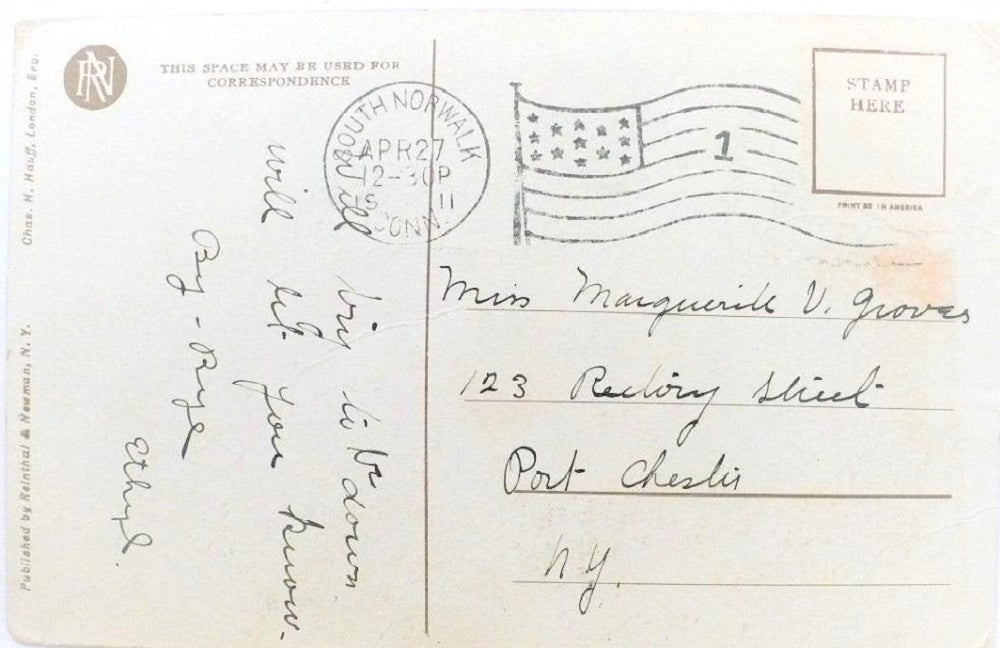 Chas. H. Hauff, London, Eng.
Published by Reinthal & Newman, N. Y.
RN
THIS SPACE MAY BE USED FOR
CORRESPONDENCE
Will try to be down
will let you know.
By - Rye
Ethyl.
SOUTH NORWALK
APR 27
12-30P
11
CONN.
1
STAMP
HERE
PRINTED IN AMERICA
Miss Marguerite V. Groves
123 Rectory Street
Port Chester
N.Y.